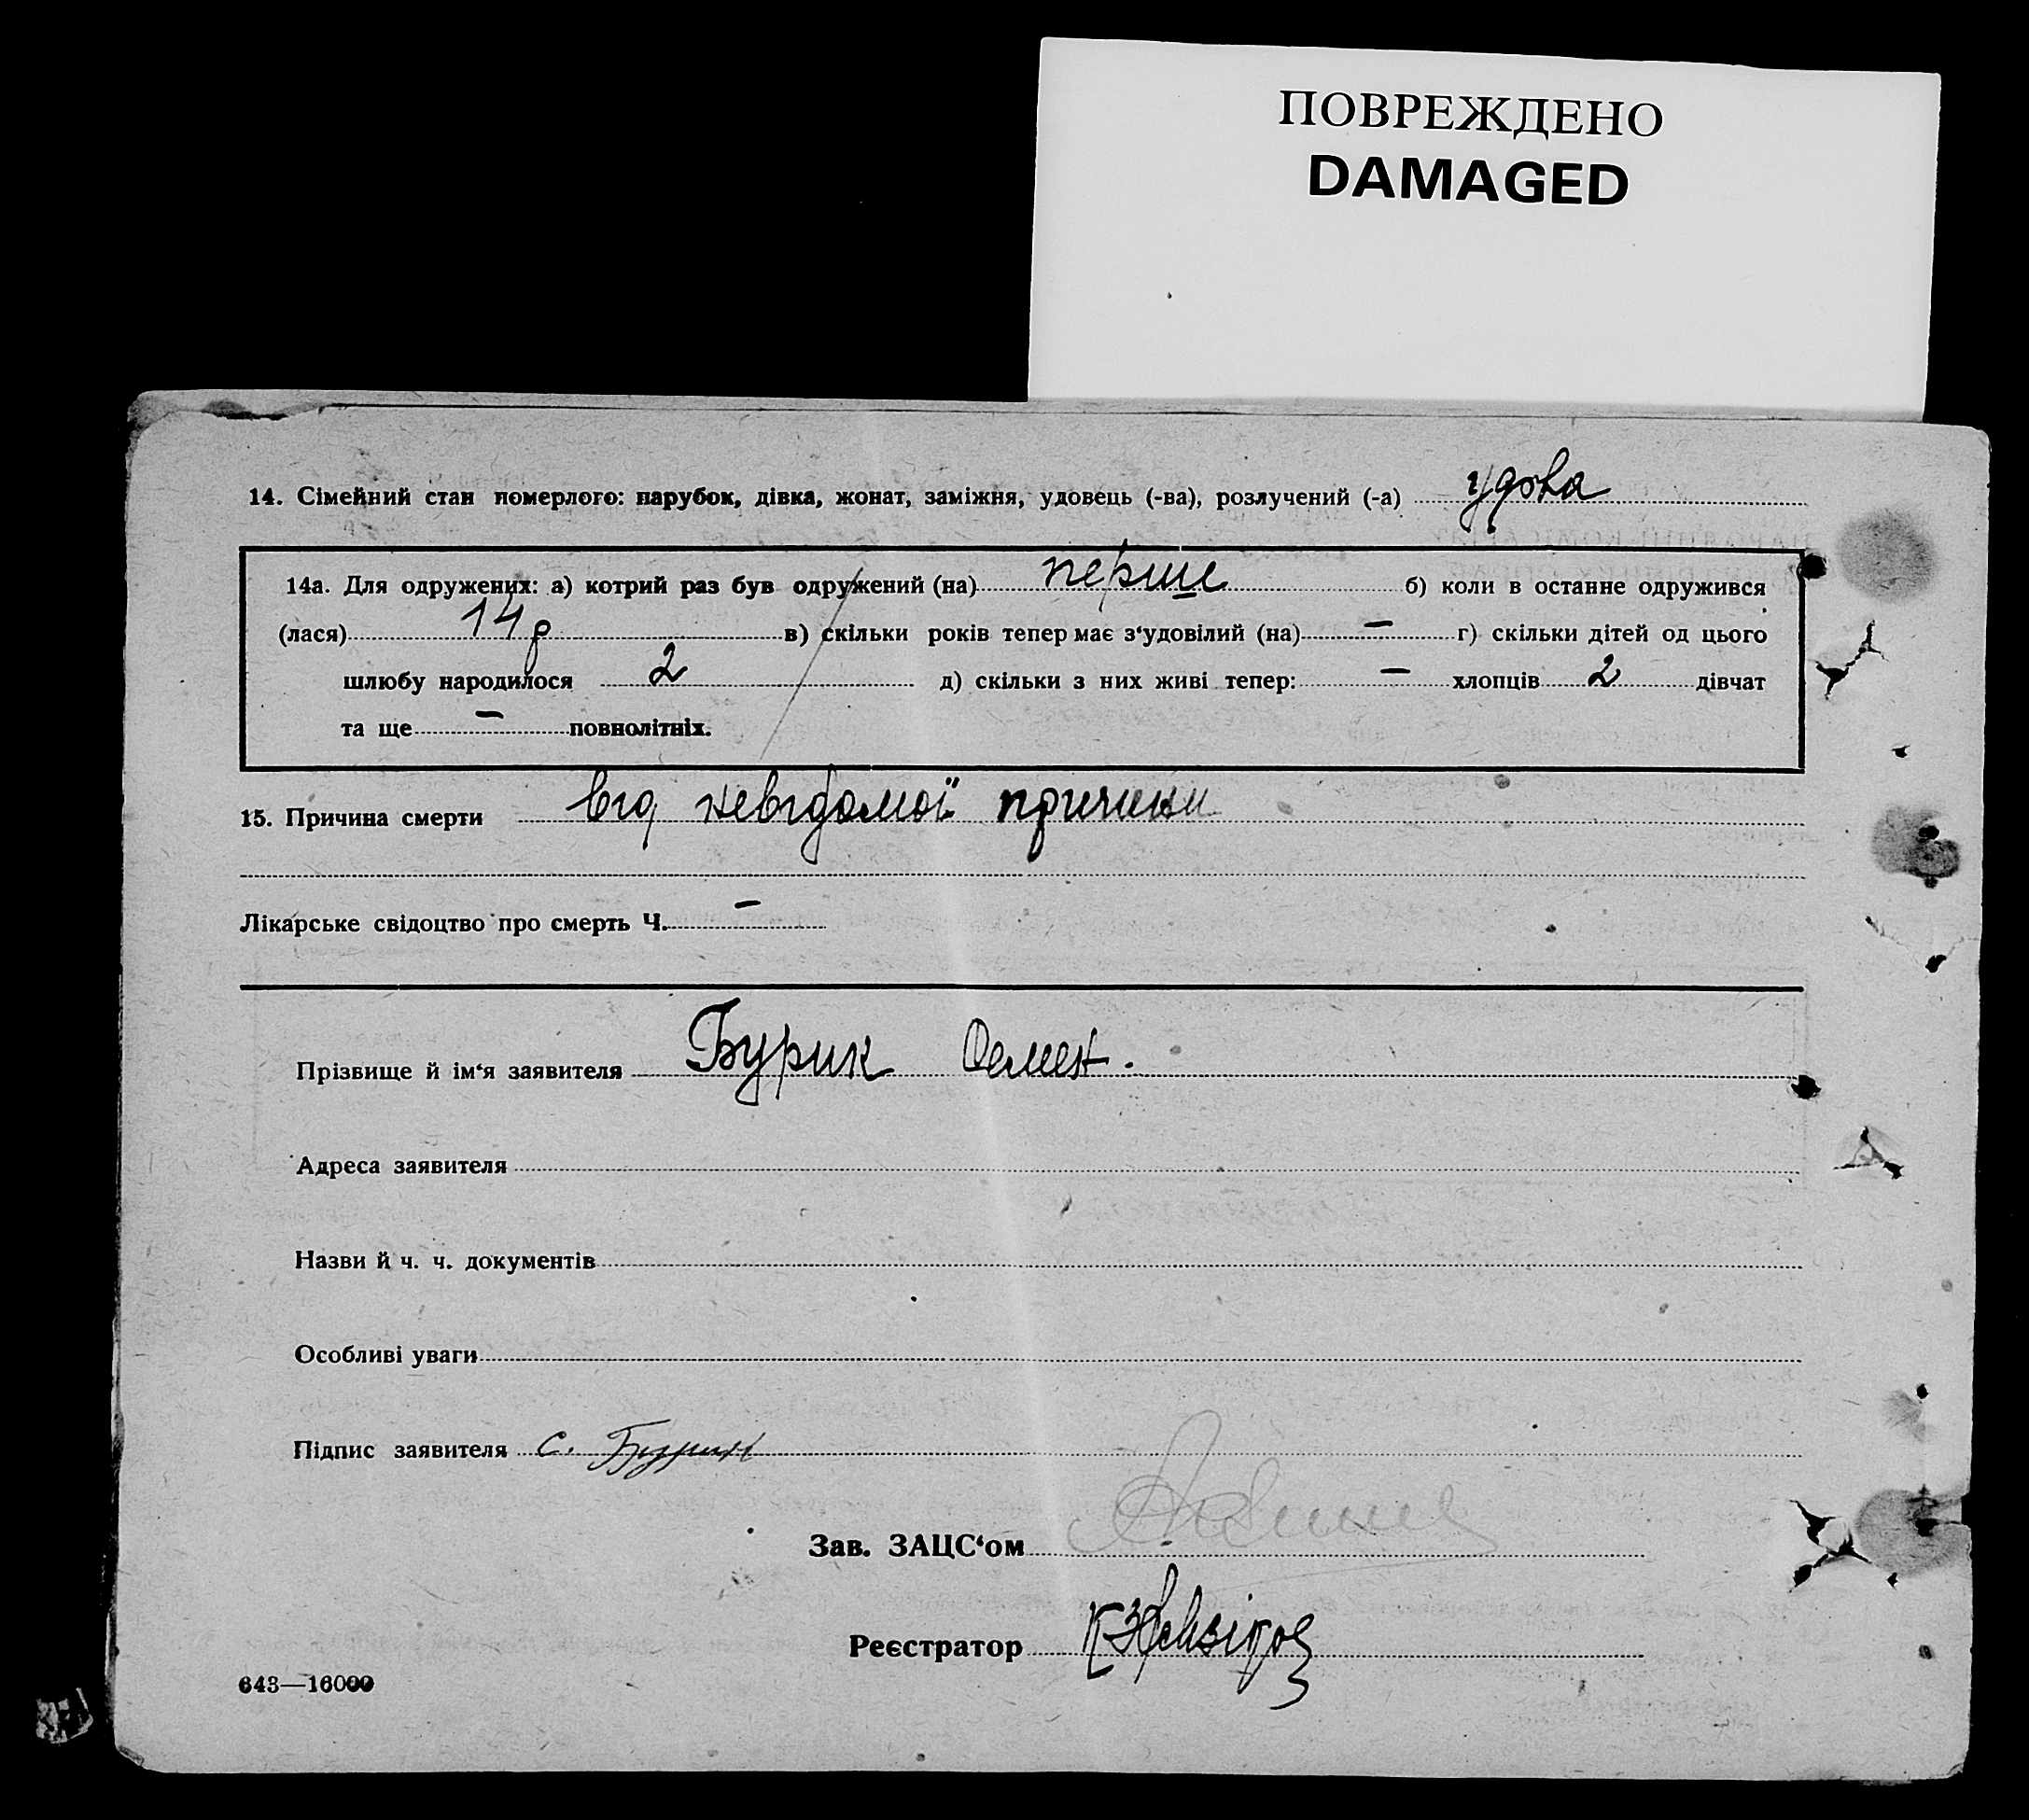 ПОВРЕЖДЕНО
DAMAGED
14. Сімейний стан померлого: парубок, дівка, жонат, заміжня, удовець (-ва), розлучений (-а) удова
14а. Для одружених: а) котрий раз був одружений (на) перше б) коли в останнє одружився
(лася) 14 р в) скільки років тепер має з‘удовілий (на) – г) скільки дітей од цього
шлюбу народилося 2 д) скільки з них живі тепер: – хлопців 2 дівчат
та ще – повнолітніх.
15. Причина смерти від невідомої причини
Лікарське свідоцтво про смерть Ч. –
Прізвище й ім‘я заявителя Бурик Семен.
Адреса заявителя
Назви й ч. ч. документів
Особливі уваги
Підпис заявителя С. Бурик
Зав. ЗАЦС‘ом
Реєстратор
643—16000